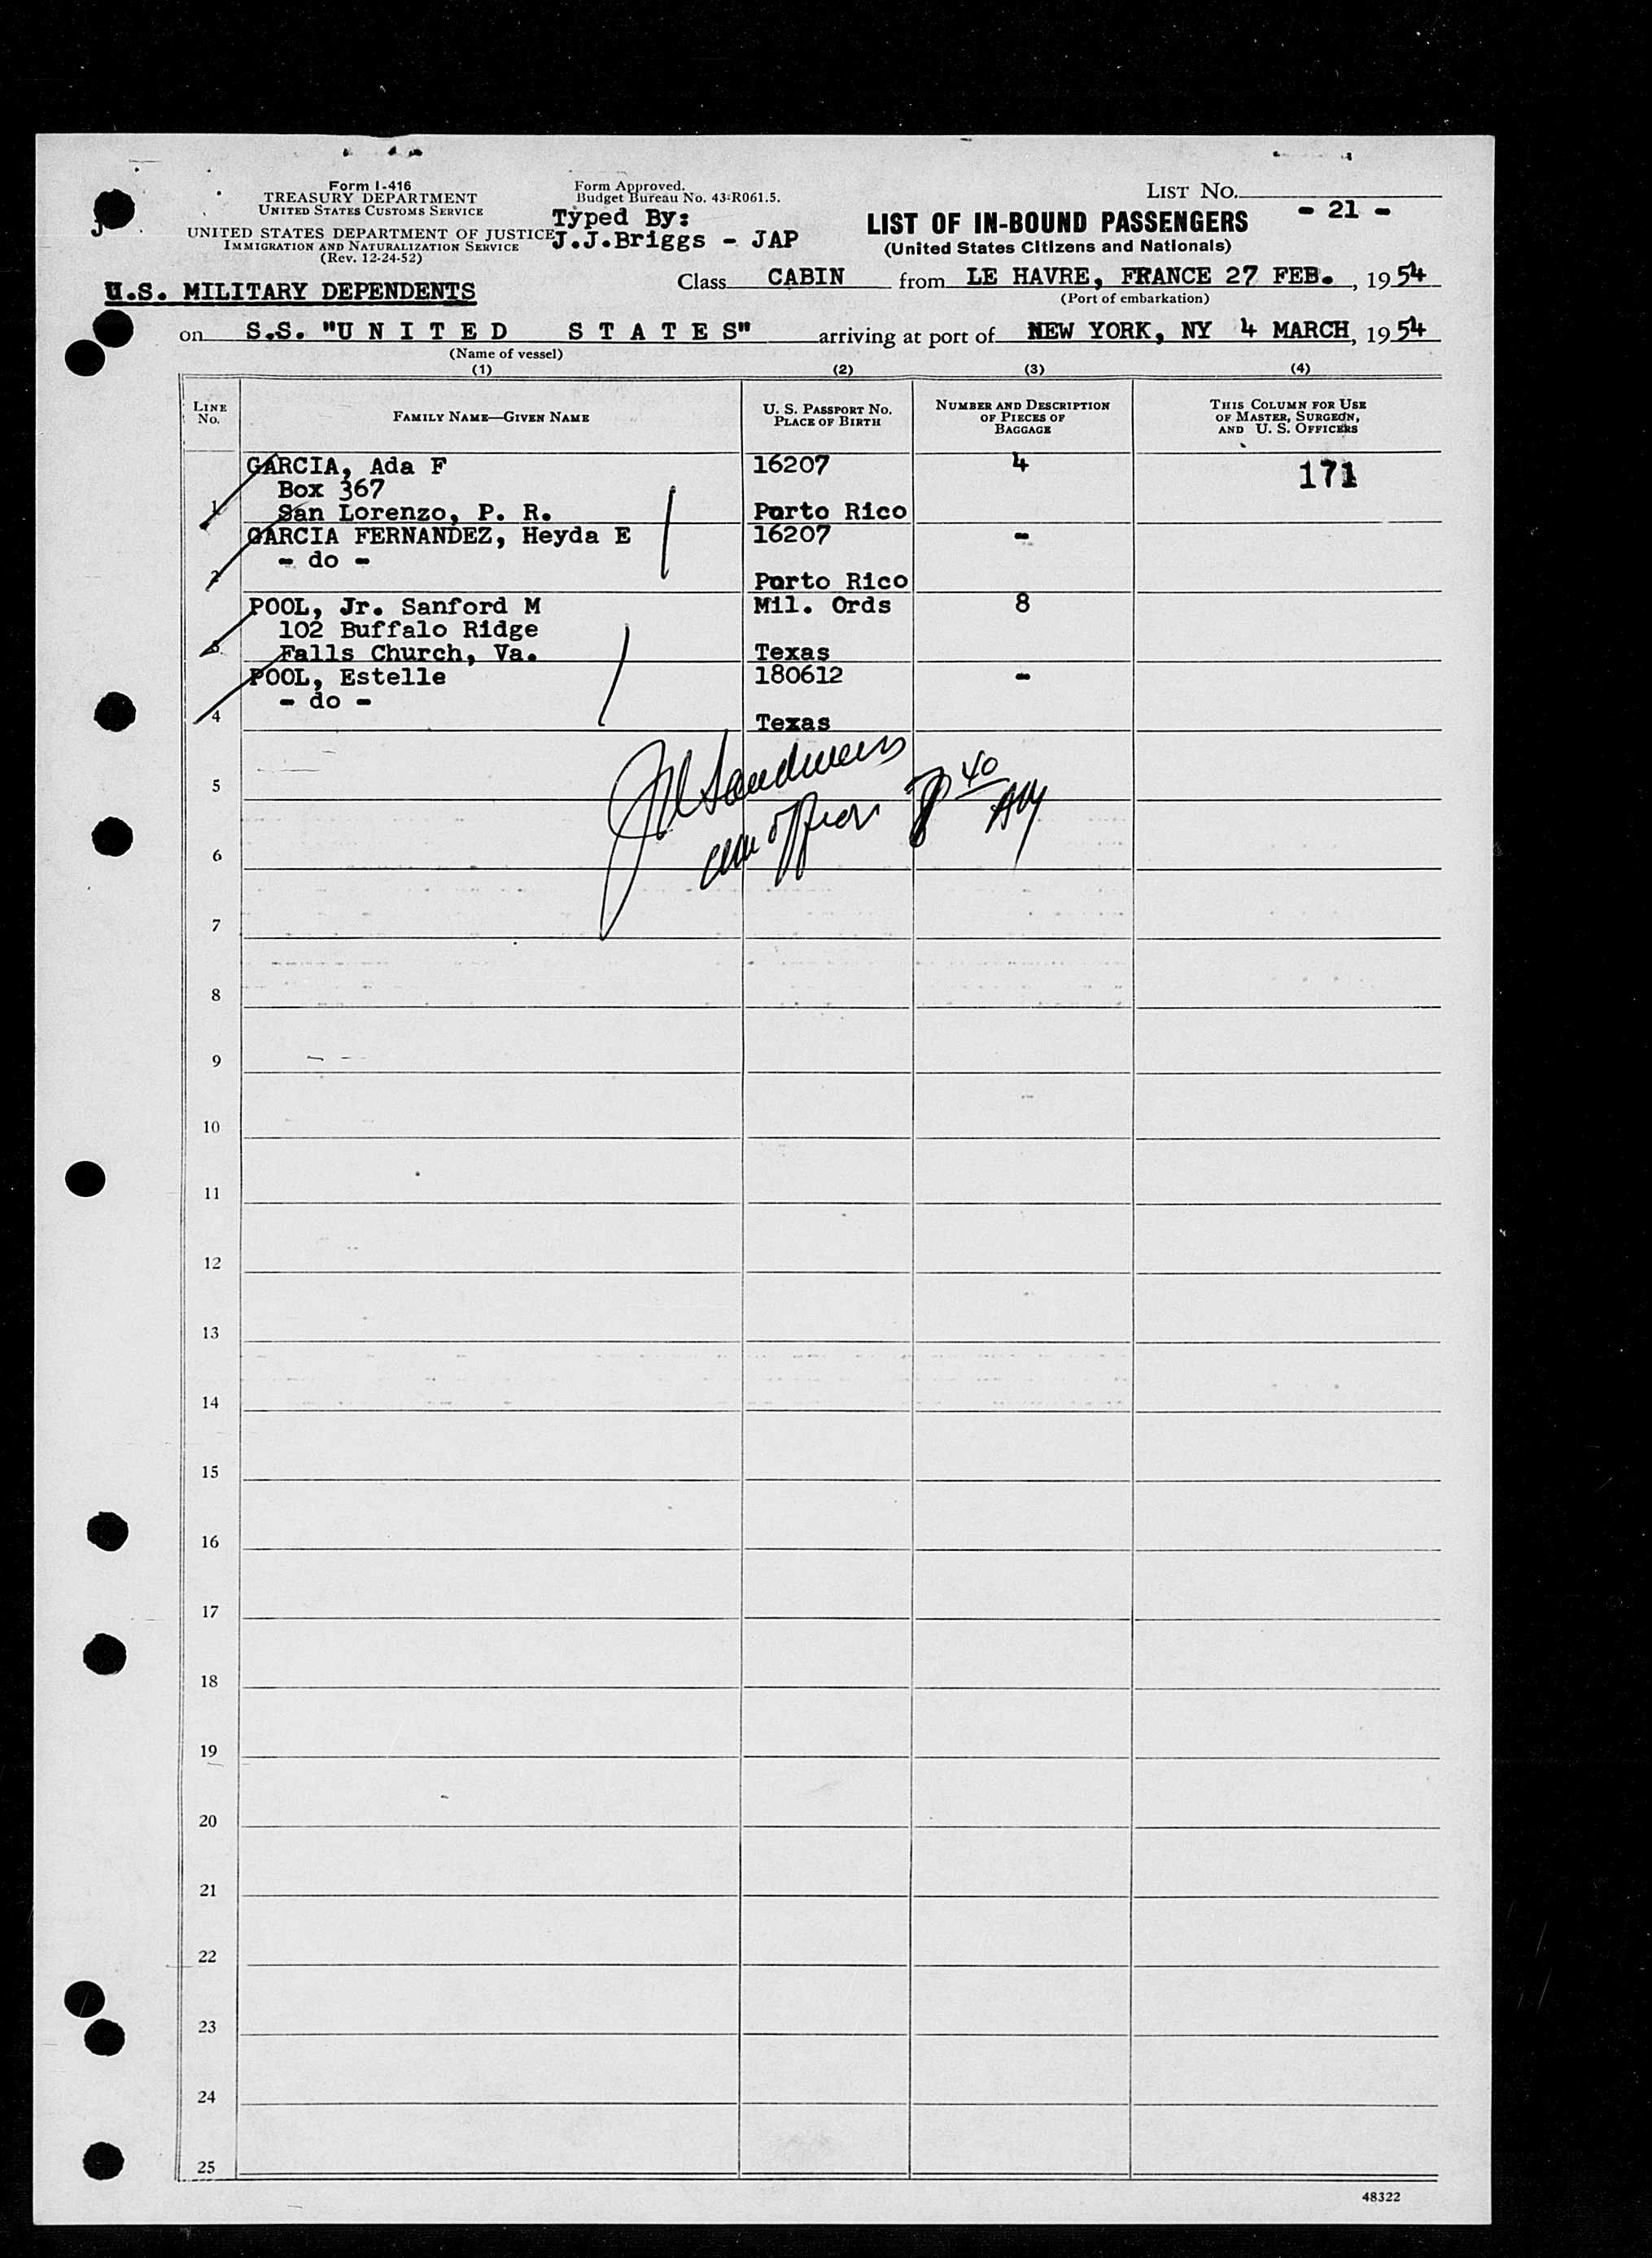 Form I-416
TREASURY DEPARTMENT
UNITED STATES CUSTOMS SERVICE
UNITED STATES DEPARTMENT OF JUSTICE
IMMIGRATION AND NATURALIZATION SERVICE
(Rev. 12-24-52)
Form Approved.
Budget Bureau No. 43-R061.5.
Typed By:
J.J.Briggs - JAP
LIST NO.
- 21 -
LIST OF IN-BOUND PASSENGERS
(United States Citizens and Nationals)
U.S. MILITARY DEPENDENTS
Class CABIN from LE HAVRE, FRANCE 27 FEB. , 1954
(Port of embarkation)
on S.S. "U N I T E D S T A T E S" arriving at port of NEW YORK, NY 4 MARCH, 1954
(Name of vessel)
(1) (2) (3) (4)
LINE No.
FAMILY NAME—GIVEN NAME
U. S. PASSPORT NO.
PLACE OF BIRTH
NUMBER AND DESCRIPTION
OF PIECES OF
BAGGAGE
THIS COLUMN FOR USE
OF MASTER, SURGEON,
AND U. S. OFFICERS
GARCIA, Ada F 16207 4 171
Box 367
1 San Lorenzo, P. R. Porto Rico
GARCIA FERNANDEZ, Heyda E 16207 -
- do -
2 Porto Rico
POOL, Jr. Sanford M Mil. Ords 8
102 Buffalo Ridge
3 Falls Church, Va. Texas
POOL, Estelle 180612 -
- do -
4 Texas
officer 8 40 AM
5
6
7
8
9
10
11
12
13
14
15
16
17
18
19
20
21
22
23
24
25
48322